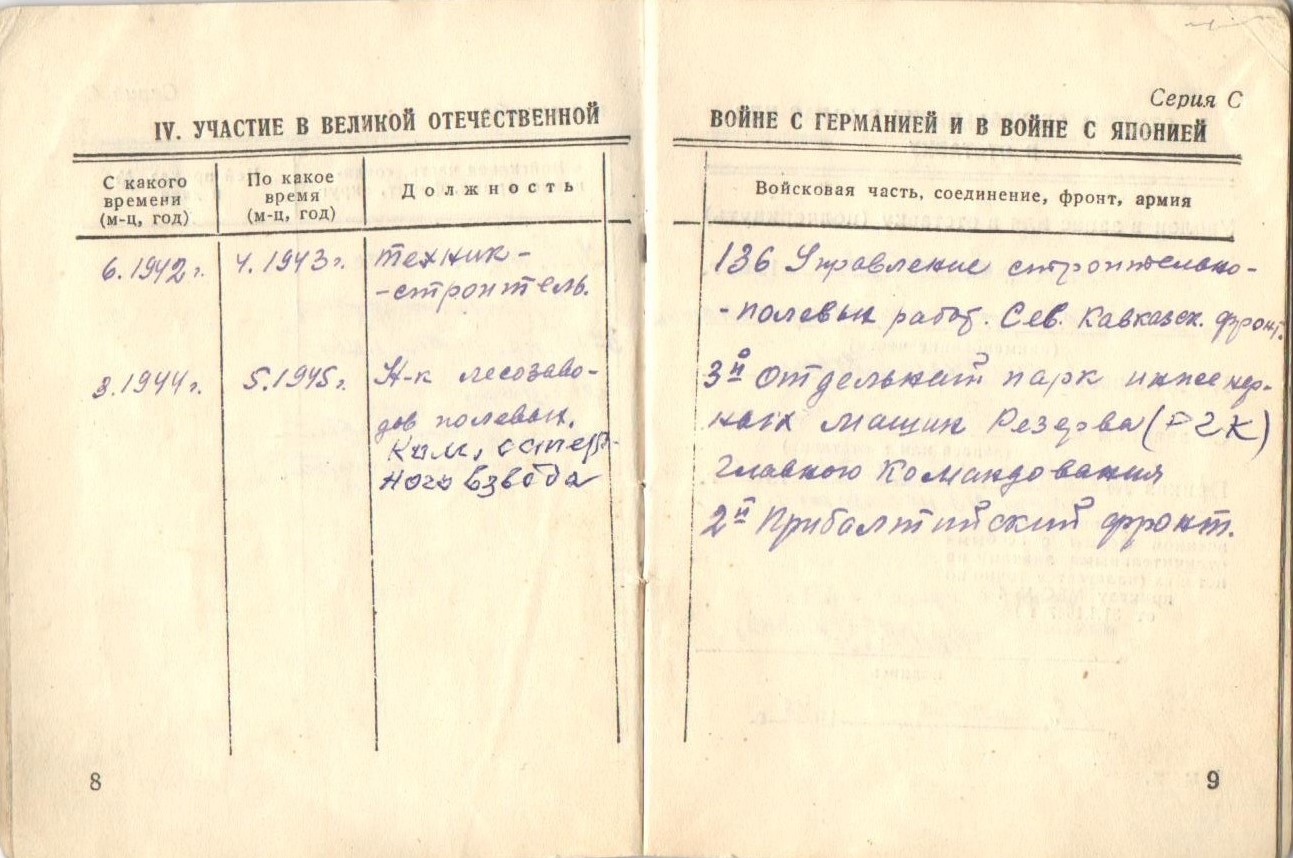 IV. УЧАСТИЕ В ВЕЛИКОЙ ОТЕЧЕСТВЕННОЙ
С какого времени (м-ц, год)
По какое время (м-ц, год)
Должность
6.1942 г.
4.1943 г.
техник-
-строитель.
3.1944 г.
5.1945 г.
Н-к лесозаво-
дов полевых.
Ком.
ного взвода
8
Серия С
ВОЙНЕ С ГЕРМАНИЕЙ И В ВОЙНЕ С ЯПОНИЕЙ
Войсковая часть, соединение, фронт, армия
136 Управление строительно-
-полевых работ. Сев. Кавказск. фронт.
3й Отдельный парк инженер-
ных машин Резерва (РГК)
Главного Командования
2й Прибалтийский фронт.
9